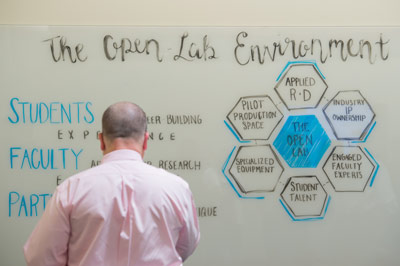 The Open-Lab Environment
Students
ER BUILDING
EXPE ENCE
Faculty
A RESEARCH
EXP
Part
IQUE
APPLIED
R·D
PILOT
PRODUCTION
SPACE
INDUSTRY
IP
OWNERSHIP
THE
OPEN
LAB
SPECIALIZED
EQUIPMENT
ENGAGED
FACULTY
EXPERTS
STUDENT
TALENT